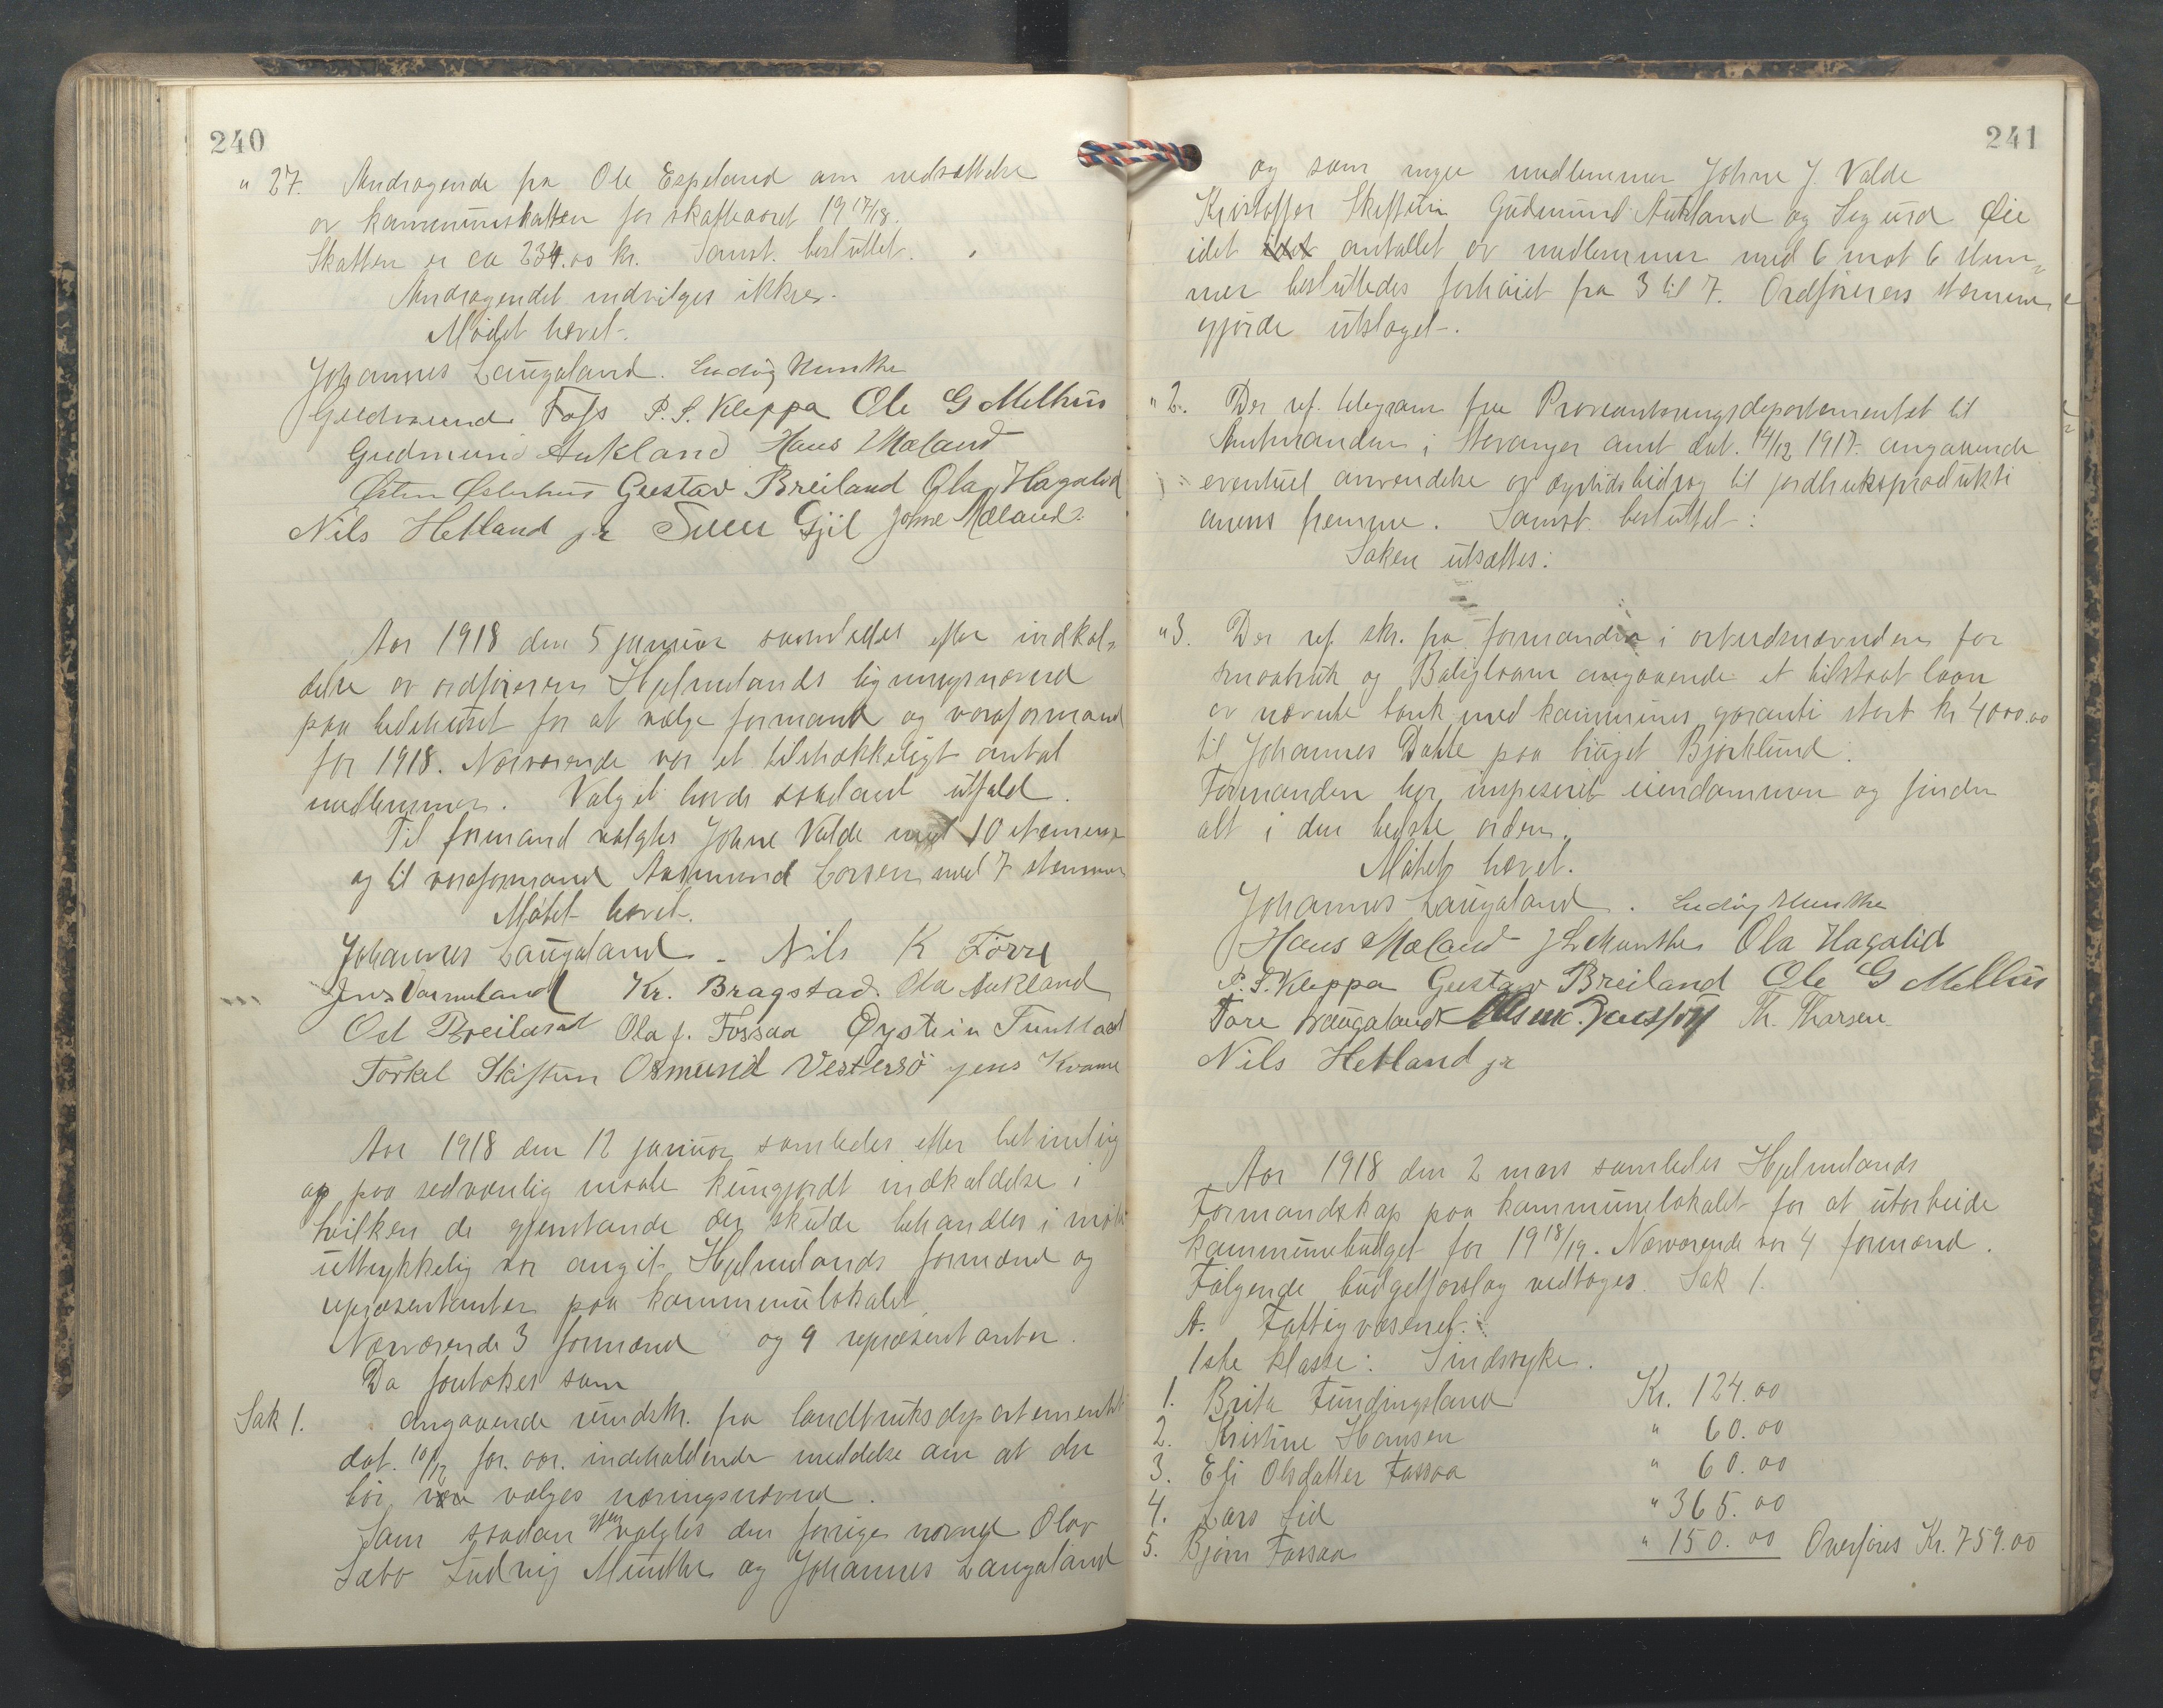 240
" 27. Andragende fra Ole Espeland om nedsættelse
av kommuneskatten for skatteaaret 1917/18.
Skatten er ca 234.00 kr. Samst. besluttet.
Andragendet indvilges ikke.
Mødet hævet.
Johannes Laugaland. Ludvig Munthe
Gudmund Foss P. S. Kleppa Ole G Melhus
Gudmund Aukland Hans Mæland
Østen Østerhus Gustav Breiland Ola Hagalid
Nils Hetland jr Sven Gjil Johne Mæland.
Aar 1918 den 5 januar samledes efter indkal-
delse av ordføreren Hjelmelands ligningsnævnd
paa bedehuset for at vælge formand og varaformand
for 1918. Nærværende var et tilstrækkeligt antal
medlemmer. Valget havde saadant utfald.
Til formand valgtes Johne Valde med 10 stemmer
og til varaformand Aasmund Larsen med 7 stemmer
Møtet hævet.
Johannes Laugaland - Nils K Førre
Jens Varmeland Kr. Bragstad. Ola Aukland
Od Breiland Ola J. Fossaa Øystein Funtland
Torkel Skiftun Osmund Vestersø Jens Kvame
Aar 1918 den 12 januar samledes efter betimelig
og paa sedvanlig maate kungjørdt indkaldelse i
hvilken de gjenstande der skulde behandles i møtet
uttrykkelig var angit Hjelmelands formænd og
repræsentanter paa kommunelokalet.
Nærværende 3 formænd og 9 repræsentanter.
Da foretokes som
Sak 1. angaaende rundskr. fra landbruksdepartementet
dat. 10/12 for. aar. indeholdende meddelse om at der
bør være vælges næringsnævnd.
Som saadan gjenvalgtes den forrige nævnd Olav
Sæbø Ludvig Munthe og Johannes Laugaland
241
og som nye medlemmer Johne J. Valde
Kristoffer Skiftun Gudmund Aukland og Sigurd Øie
idet idet antallet av medlemmer med 6 mot 6 stem-
mer besluttedes forhøiet fra 3 til 7. Ordførerens stemme
gjorde utslaget.
" 2. Der ref. telegram fra Provianteringsdepartementet til
Amtmanden i Stavanger amt dat. 14/12 1917 angaaende
eventuel anvendelse av dyrtidsbidrag til jordbruksprodukti
onens fremme. Samst. besluttet:
Saken utsættes:
" 3. Der ref. skr. fra formanden i arbeidsnævnden for
smaabruk og Boliglaan angaaende et tilstaat laan
av nævnte bank med kommunes garanti stort kr 4000.00
til Johannes Dahle paa bruget Bjørklund.
Formanden har inspeseret eiendommen og finder
alt i den bedste orden.
Møtet hævet.
Johannes Laugaland. Ludvig Munthe
Hans Mæland J L Munthe Ola Hagalid
P. S. Kleppa Gustav Breiland Ole G Melhus
Tore Laugaland Th. Tharsen
Nils Hetland jr
Aar 1918 den 2 mars samledes Hjelmelands
Formandskap paa kommunelokalet for at utarbeide
kommunebudget for 1918/19. Nærværende var 4 formænd.
Følgende budgetforslag vedtoges. Sak 1.
A. Fattigvæsenet:
1ste klasse: Sindssyke.
1. Brita Fundingsland Kr. 124.00
2. Kristine Hansen " 60.00
3. Eli Olsdatter Fossaa " 60.00
4. Lars Lid " 365.00
5. Bjørn Fossaa " 150.00 Overføres Kr. 759.00